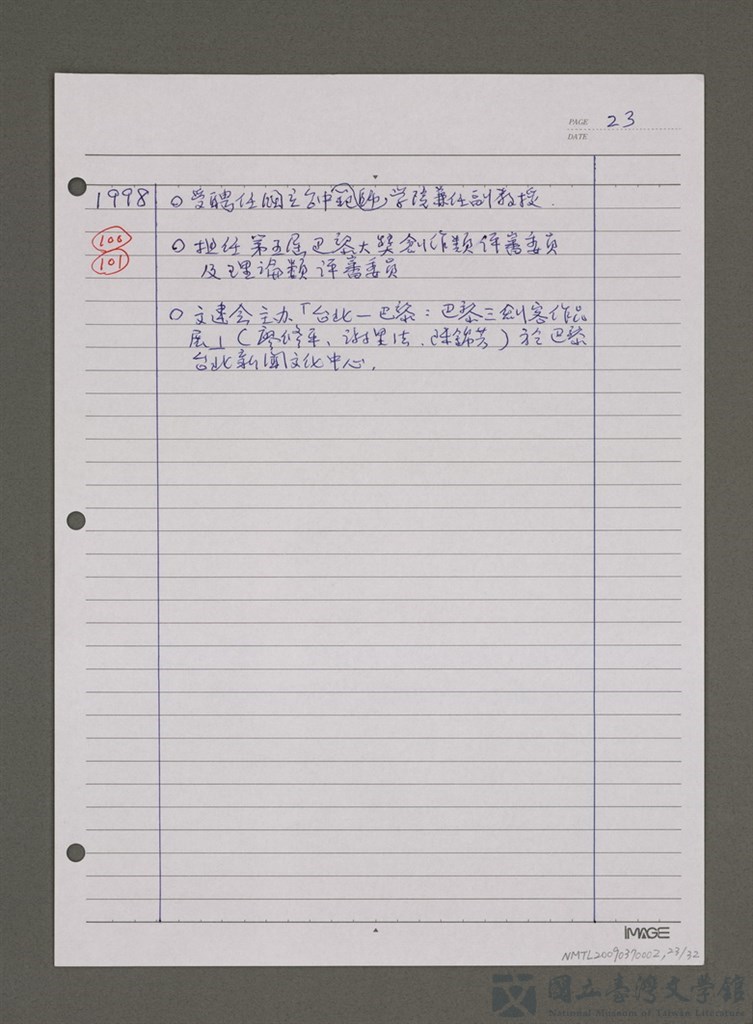 PAGE 23
DATE
1998 ○受聘任國立台中師範學院兼任副教授.
100
101
○担任第五屆巴黎大獎創作類評審委員
及理論類評審委員
○文建会主办「台北—巴黎:巴黎三劍客作品
展」(廖修平、謝里法、陳錦芳)於巴黎
台北新聞文化中心.
IMAGE
NMTL20090370002, 23/32
國立臺灣文學館
National Museum of Taiwan Literature